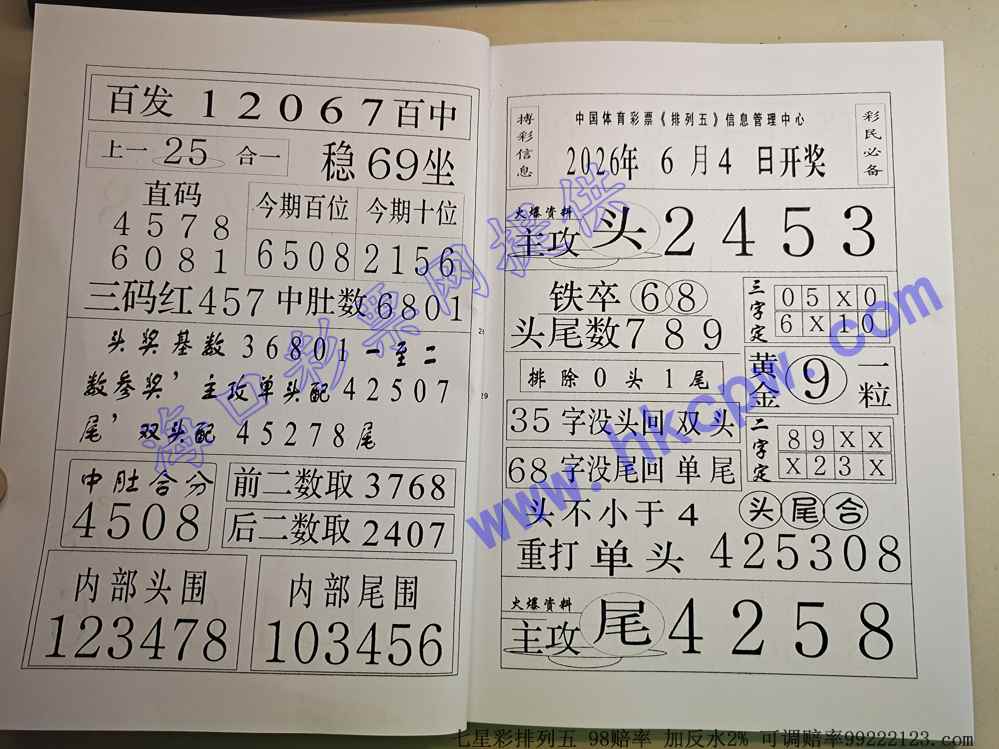 百发 12067 百中
上一 25 合一 稳 69 坐
直码
4578
6081
今期百位 今期十位
6508 2156
三码红 457 中肚数 6801
头奖基数 36801 一至二
数参奖’主攻单头配 42507
尾’双头配 45278 尾
中肚合分
4508
前二数取 3768
后二数取 2407
内部头围
123478
内部尾围
103456
28
29
搏彩信息
中国体育彩票《排列五》信息管理中心
2026年 6 月 4 日开奖
彩民必备
火爆资料
主攻 头 2453
铁卒 68
头尾数 789
三字定
05X0
6X10
排除 0 头 1 尾
黄金 9 一粒
35 字没头回 双 头
68 字没尾回 单 尾
二字定
89XX
X23X
头不小于 4 头尾合
重打 单 头 425308
火爆资料
主攻 尾 4258
海口彩票网提供
www.hkcpw.com
七星彩排列五 98赔率 加反水2% 可调赔率99222123.com